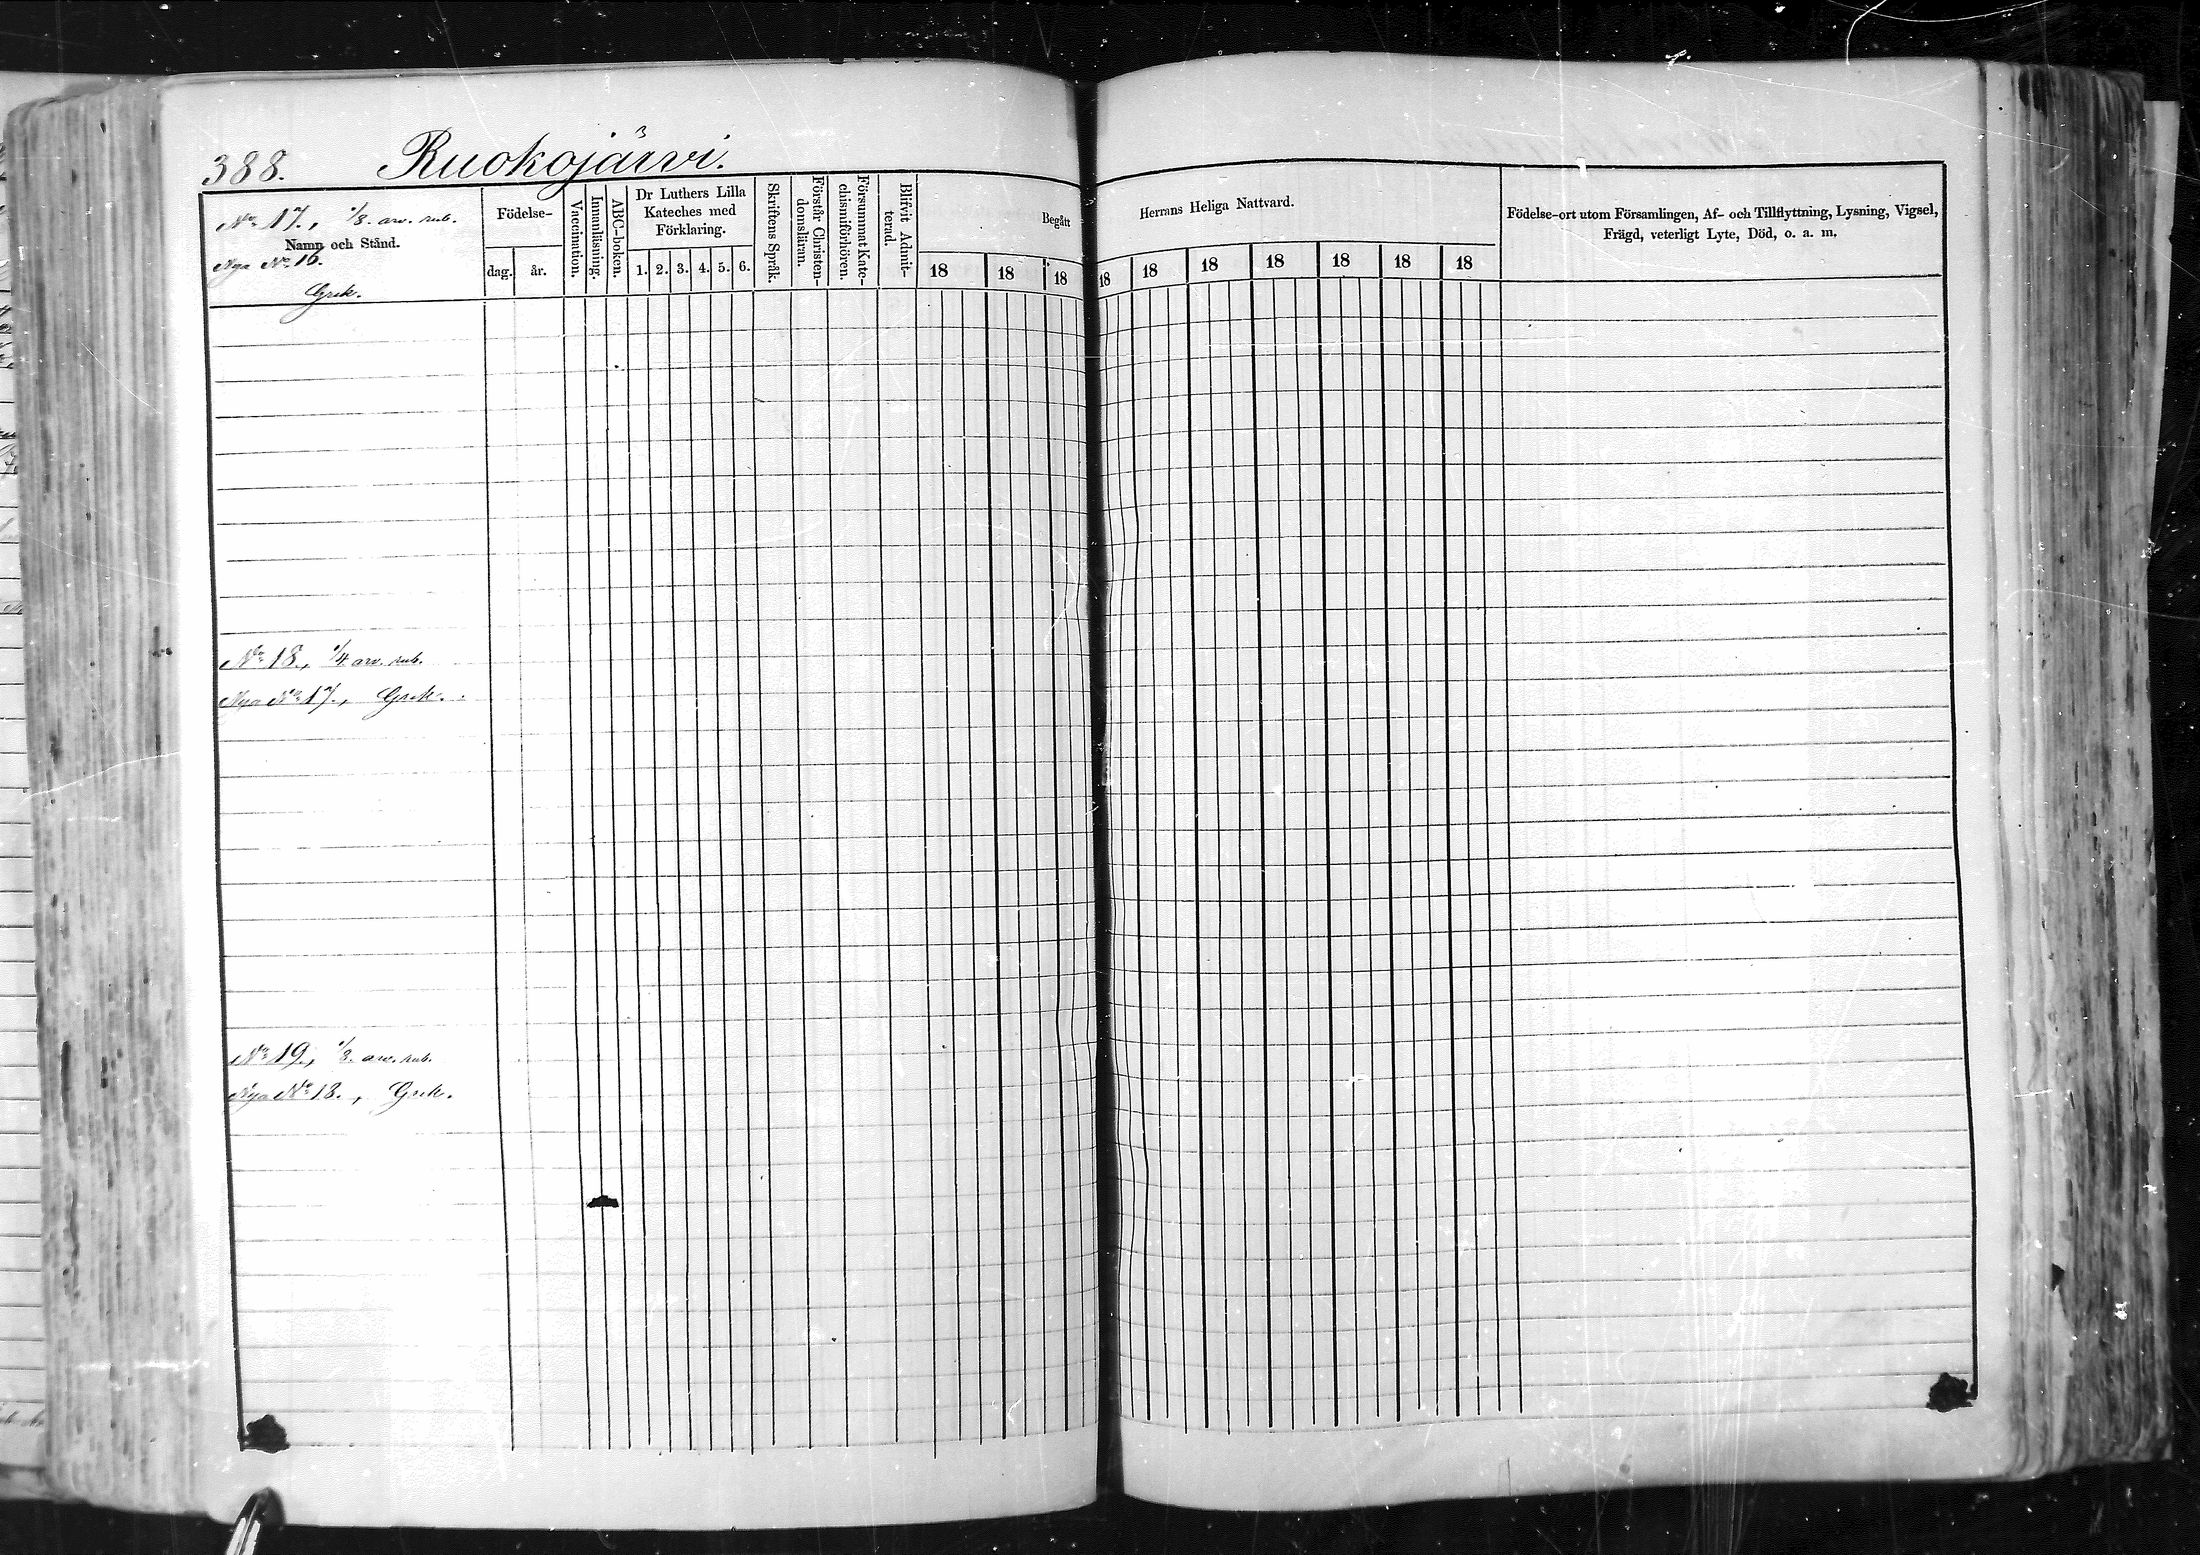 388. Ruokojärvi.
No 17., 1/8. arv. rub.
Namn och Stånd.
Nya No 16.
Grek.
Födelse-
dag.
år.
Vaccination.
Innanläsning.
ABC-boken.
Dr Luthers Lilla
Kateches med
Förklaring.
1. 2. 3. 4. 5. 6.
Skriftens Språk.
Förstår Christen-
domsläran.
Försummat Kate-
chismiförhören.
Blifvit Admit-
terad.
Begått
Herrans Heliga Nattvard.
18 18 18 18 18 18 18 18 18 18
Födelse-ort utom Församlingen, Af- och Tillflyttning, Lysning, Vigsel,
Frägd, veterligt Lyte, Död, o. a. m.
No 18., 1/4 arv. rub.
Nya No 17., Grek.
No 19., 1/8. arv. rub.
Nya No 18., Grek.